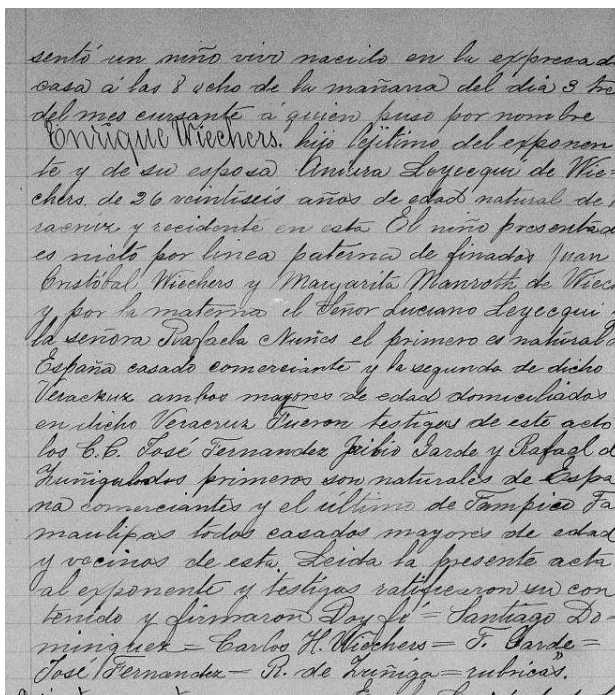 sentó un niño vivo nacido en la expresad
casa á las 8 ocho de la mañana del dia 3 tre
del mes cursante á quien puso por nombre
Enrique Wiechers. hijo lejitimo del exponen
te y de su esposa Leyecegui de Wie=
chers. de 26 veintiseis años de edad natural de
racruz y recidente en esta El niño presentad
es nieto por linea paterna de finados Juan
Cristóbal Wiechers y Margarita Manroth de Wiec
y por la materna el Señor Luciano Leyecegui
la señora Rafaela Nuñes el primero es natural d
España casado comerciante y la segunda de dicho
Veracruz ambos mayores de edad domiciliados
en dicho Veracruz Fueron testigos de este acto
los C.C. José Fernandez Garde y Rafael d
Zuñiga los dos primeros son naturales de Espa
na comerciantes y el último de Tampico Ta
maulipas todos casados mayores de edad
y vecinos de esta. Leida la presente acta
al exponente y testigos ratificaron su con
tenido y firmaron Doy fé = Santiago Do=
minguez = Carlos H. Wiechers = T. Garde =
José Fernandez = R. de Zuñiga = rubricas.